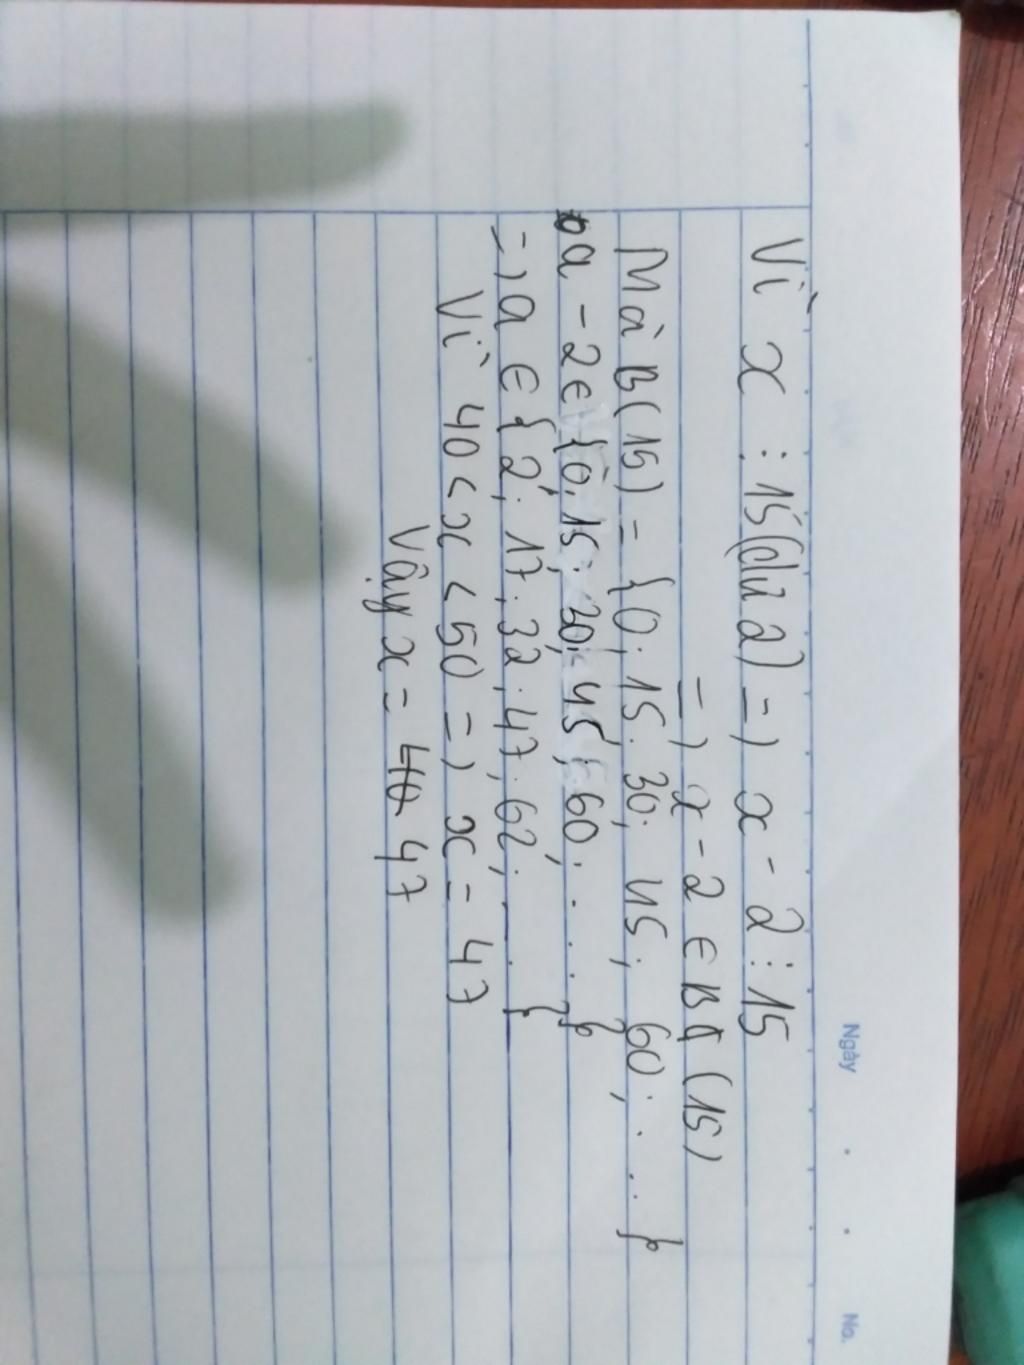 Ngày No.
Vì x ⋮ 15(dư 2) => x - 2 ⋮ 15
=> x - 2 ∈ B (15)
Mà B(15) = {0; 15; 30; 45; 60; ...}
a - 2 ∈ {0; 15; 30; 45; 60; ....}
=> a ∈ {2; 17; 32; 47; 62; ...}
Vì 40 < x < 50 => x = 47
Vậy x = 47